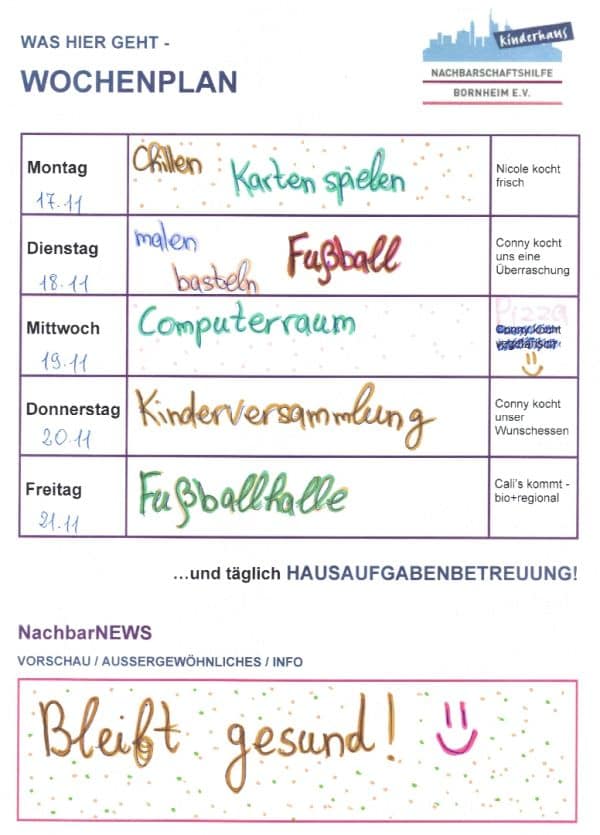 WAS HIER GEHT -
WOCHENPLAN
kinderhaus
NACHBARSCHAFTSHILFE
BORNHEIM E.V.
Montag
17.11
Chillen
Karten spielen
Nicole kocht
frisch
Dienstag
18.11
malen
basteln
Fußball
Conny kocht
uns eine
Überraschung
Mittwoch
19.11
Computerraum
Pizza
Conny kocht
Donnerstag
20.11
Kinderversammlung
Conny kocht
unser
Wunschessen
Freitag
21.11
Fußballhalle
Cali's kommt -
bio+regional
...und täglich HAUSAUFGABENBETREUUNG!
NachbarNEWS
VORSCHAU / AUSSERGEWÖHNLICHES / INFO
Bleibt gesund!